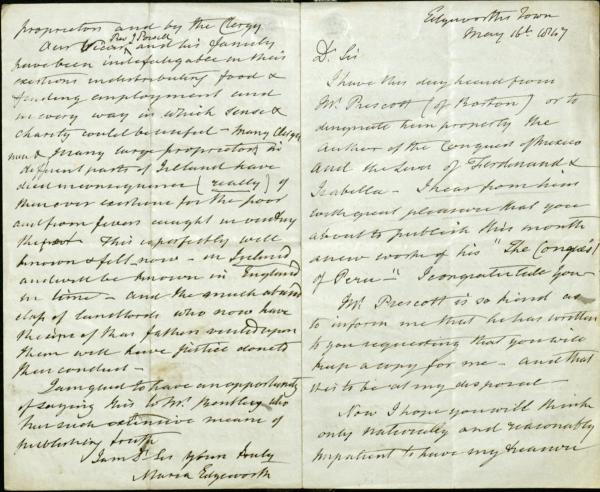 Edgeworths Town
May 16th 1847
Dr Sir
I have this day heard from
Mr. Prescott (of Boston) or to
designate him properly the
author of the Conquest of Mexico
and the Lives of Ferdinand &
Isabella – I hear from him
with great pleasure that you
about to publish this month
a new work of his "The Conquest
of Peru –" I congratulate you –
Mr. Prescott is so kind as
to inform me that he has written
to you requesting that you will
keep a copy for me – and that
it is to be at my disposal –
Now I hope you will think
only naturally and reasonably
impatient to have my treasure
proprietors and by the Clergy
Our Vicar, Revd J Powell and his family
have been indefatigable in their
exertions in distributing food &
finding employment and
in every way in which sense &
charity could be useful – Many Clergy
men & many large proprietors in
different parts of Ireland have
died in consequence (really) of
their over exertions for the poor
and from fevers caught in visiting
the poor – This is perfectly well
known & felt now – in Ireland
and will be known in England
in time – and the much abused
class of landlords who now have
the sins of their fathers visited upon
them will have justice done to
their conduct –
I am glad to have an opportunity
of saying this to Mr. Bentley who
has such extensive means of
publishing truth
I am Dr Sir Yours truly
Maria Edgeworth